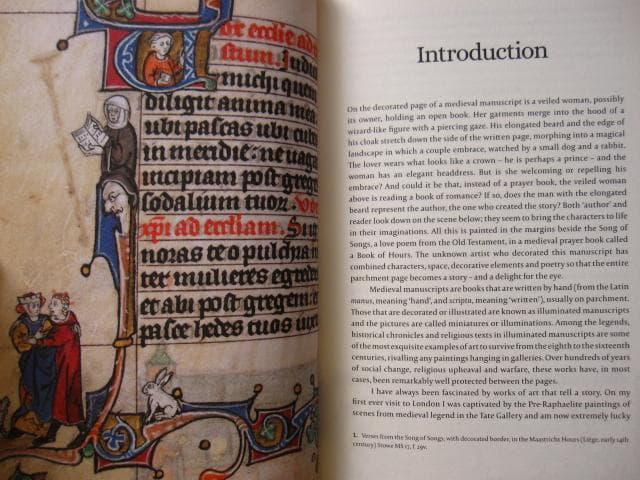 or ecclie ad
strum. Judi
michi quem
diligit anima mea
ubi pascas ubi cub
in meridie: ne uaga
incipiam post grege
sodalium tuor. Vo
xpi ad eccliam. Si
noras te o pulchra
ter mulieres egred
et abi post gregem
pasce hedes tuos iux
Introduction
On the decorated page of a medieval manuscript is a veiled woman, possibly
its owner, holding an open book. Her garments merge into the hood of a
wizard-like figure with a piercing gaze. His elongated beard and the edge of
his cloak stretch down the side of the written page, morphing into a magical
landscape in which a couple embrace, watched by a small dog and a rabbit.
The lover wears what looks like a crown – he is perhaps a prince – and the
woman has an elegant headdress. But is she welcoming or repelling his
embrace? And could it be that, instead of a prayer book, the veiled woman
above is reading a book of romance? If so, does the man with the elongated
beard represent the author, the one who created the story? Both 'author' and
reader look down on the scene below; they seem to bring the characters to life
in their imaginations. All this is painted in the margins beside the Song of
Songs, a love poem from the Old Testament, in a medieval prayer book called
a Book of Hours. The unknown artist who decorated this manuscript has
combined characters, space, decorative elements and poetry so that the entire
parchment page becomes a story – and a delight for the eye.
Medieval manuscripts are books that are written by hand (from the Latin
manus, meaning 'hand', and scripta, meaning 'written'), usually on parchment.
Those that are decorated or illustrated are known as illuminated manuscripts
and the pictures are called miniatures or illuminations. Among the legends,
historical chronicles and religious texts in illuminated manuscripts are some of
the most exquisite examples of art to survive from the eighth to the sixteenth
centuries, rivalling any paintings hanging in galleries. Over hundreds of years
of social change, religious upheaval and warfare, these works have, in most
cases, been remarkably well protected between the pages.
I have always been fascinated by works of art that tell a story. On my
first ever visit to London I was captivated by the Pre-Raphaelite paintings of
scenes from medieval legend in the Tate Gallery and am now extremely lucky
1. Verses from the Song of Songs, with decorated border, in the Maastricht Hours (Liège, early 14th
century) Stowe MS 17, f. 29v.